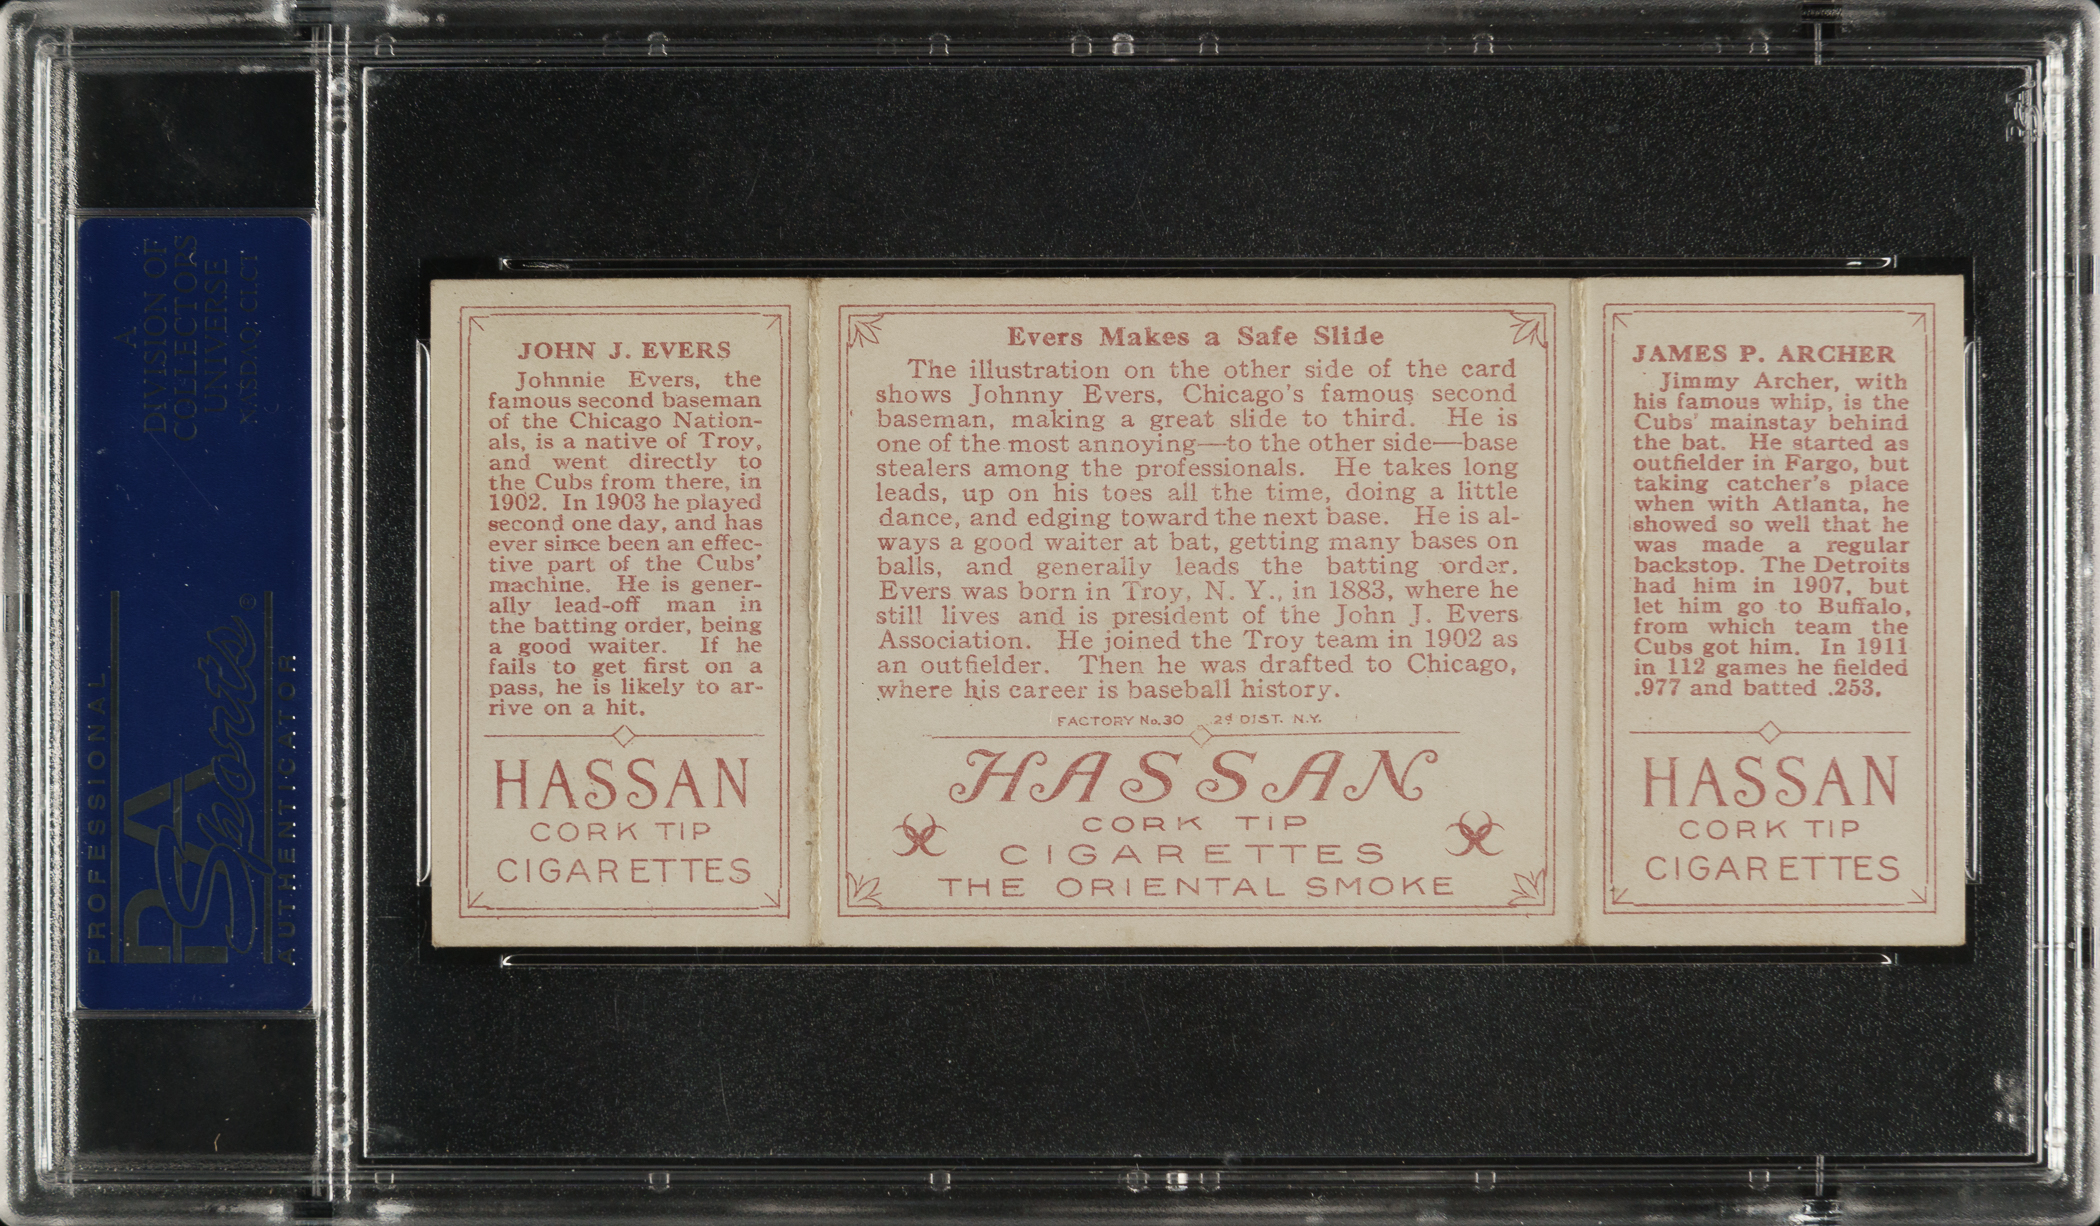 A
DIVISION OF
COLLECTORS
UNIVERSE
NASDAQ: CLCT
PROFESSIONAL
PSA
Sports®
AUTHENTICATOR
JOHN J. EVERS
Johnnie Evers, the
famous second baseman
of the Chicago Nation-
als, is a native of Troy,
and went directly to
the Cubs from there, in
1902. In 1903 he played
second one day, and has
ever since been an effec-
tive part of the Cubs'
machine. He is gener-
ally lead-off man in
the batting order, being
a good waiter. If he
fails to get first on a
pass, he is likely to ar-
rive on a hit.
HASSAN
CORK TIP
CIGARETTES
Evers Makes a Safe Slide
The illustration on the other side of the card
shows Johnny Evers, Chicago's famous second
baseman, making a great slide to third. He is
one of the most annoying—to the other side—base
stealers among the professionals. He takes long
leads, up on his toes all the time, doing a little
dance, and edging toward the next base. He is al-
ways a good waiter at bat, getting many bases on
balls, and generally leads the batting order.
Evers was born in Troy, N. Y., in 1883, where he
still lives and is president of the John J. Evers
Association. He joined the Troy team in 1902 as
an outfielder. Then he was drafted to Chicago,
where his career is baseball history.
FACTORY No. 30 2d DIST. N.Y.
HASSAN
CORK TIP
CIGARETTES
THE ORIENTAL SMOKE
JAMES P. ARCHER
Jimmy Archer, with
his famous whip, is the
Cubs' mainstay behind
the bat. He started as
outfielder in Fargo, but
taking catcher's place
when with Atlanta, he
showed so well that he
was made a regular
backstop. The Detroits
had him in 1907, but
let him go to Buffalo,
from which team the
Cubs got him. In 1911
in 112 games he fielded
.977 and batted .253.
HASSAN
CORK TIP
CIGARETTES
PSA